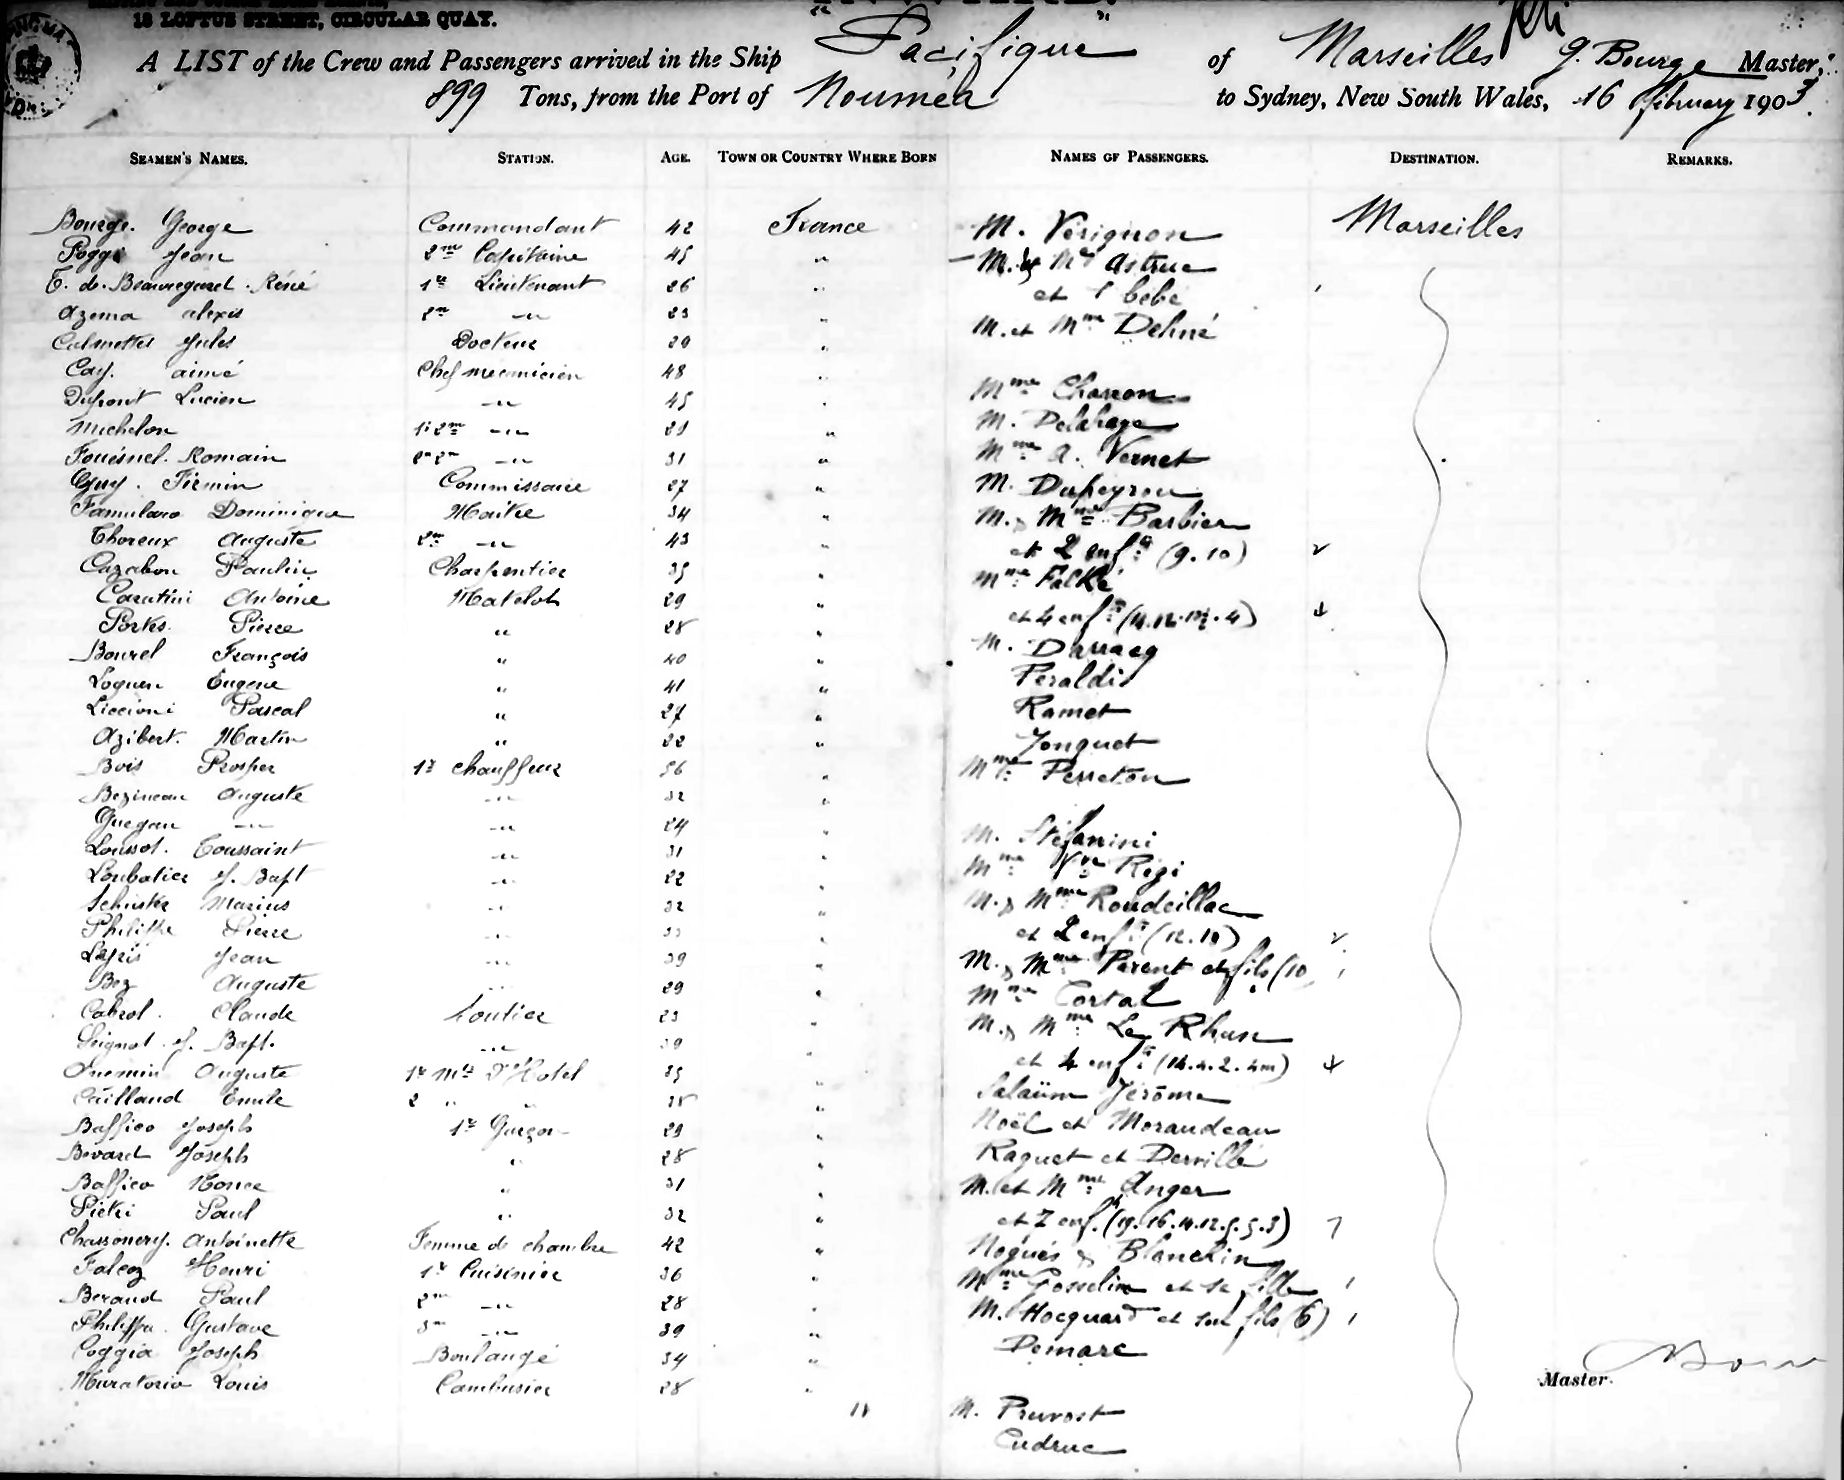 18 LOFTUS STREET, CIRCULAR QUAY.
A LIST of the Crew and Passengers arrived in the Ship "Pacifique" of Marseilles G. Bourge Master,
899 Tons, from the Port of Nouméa to Sydney, New South Wales, 16 february 1903.
SEAMEN'S NAMES. STATION. AGE. TOWN OR COUNTRY WHERE BORN NAMES OF PASSENGERS. DESTINATION. REMARKS.
Bourge. George Commandant 42 France M. Vérignon Marseilles
Poggi Jean 2me Capitaine 45 " M. & Me Astruc
T. de. Beauregard. Réné 1er Lieutenant 26 " et 1 bébé
Azema alexis 2me -"- 23 " M. et Mme Deliné
Calmettes Jules Docteur 29 "
Cay. aimé Chef mecanicien 48 "
Dupont Lucien -"- 45 " Mme Charron
Michelon 1r 2me -"- 29 " M. Delahaye
Fouésnel. Romain 2me 2me -"- 31 " Mme A. Vernet
Guy. Firmin Commissaire 27 " M. Dupeyrou
Famularo Dominique Maitre 34 " M. & Mme Barbier
Thoreux Auguste 2me -"- 43 " et 2 enfts (9.10) 2
Cazabon Paulin Charpentier 35 " Mme Falké
Casatini Antoine Matelot 29 " et 4 enfts 4
Portes. Pierre " 28 " M. Darracq
Bourel François " 40 " Peraldi
Loquen Eugene " 41 " Ramet
Liccioni Pascal " 27 " Jonquet
Azibert. Martin " 22 " Mme Perreton
Bois Prosper 1er chauffeur 36 "
Bezineau Auguste -"- 32 "
Guegan -"- -"- 24 " M. Stéfanini
Loussot. Toussaint -"- 31 " Mme Vve Régi
Loubatier J. Bapt -"- 22 " M. & Mme Roudeillac
Marius -"- 32 " et 2 enfts (12.10) 2
Philippe Pierre -"- " M. & Mme Parent et fils (10 1
Jean -"- 39 " Mme Cortal
Bez Auguste -"- 29 " M. & Mme Le Rhun
Cabrol. Claude Soutier 23 " et 4 enfts (14.4.2.4m) 4
J. Bapt. -"- 39 " Salaün Jérôme
Auguste 1er Mte D'Hotel 35 " Noël et Morandeau
Caillaud Emile 2 " " " Raguet et Derville
Baffico Joseph 1er Garçon 29 " M. et Mme Anger
Bevard Joseph " 28 " et 7 enf. (19.16.14.12.9.5.3) 7
Baffico Nonce " 31 " Noguès & Blanchin
Pietri Paul " 32 " Mme Gosselin et sa fille 1
Chassonery. Antoinette Femme de chambre 42 " M. Hocquard et son fils (6) 1
Falcoz Henri 1er Cuisinier 36 " Demare
Beraud Paul 2me -"- 28 "
Philippe. Gustave 3me -"- 39 " M. Pruvost
Coggia Joseph Boulangé 34 " Cudruc
Muratorio Louis Cambusier 28 "
Master.